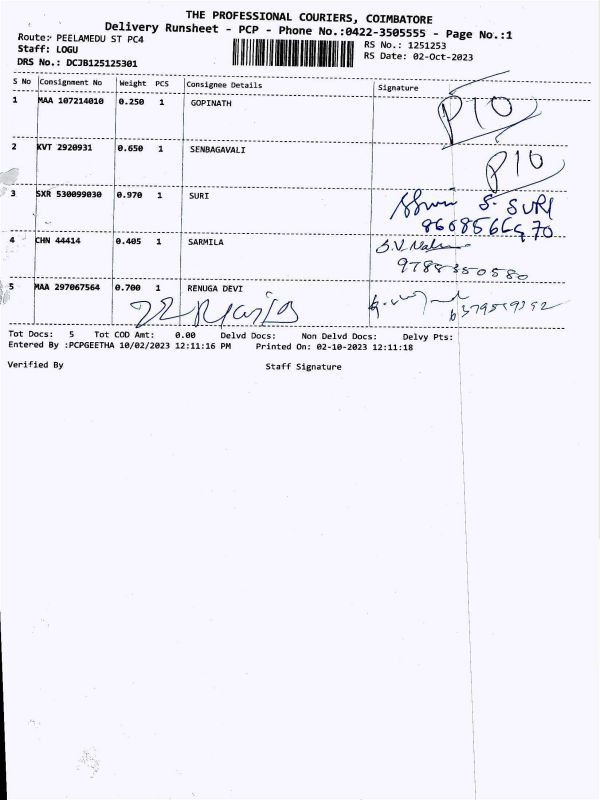 THE PROFESSIONAL COURIERS, COIMBATORE
Delivery Runsheet - PCP - Phone No.:0422-3505555 - Page No.:1
Route: PEELAMEDU ST PC4
RS No.: 1251253
Staff: LOGU
RS Date: 02-Oct-2023
DRS No.: DCJB125125301
S No Consignment No Weight PCS Consignee Details Signature
1 MAA 107214010 0.250 1 GOPINATH P10
2 KVT 2920931 0.650 1 SENBAGAVALI P10
3 SXR 530099030 0.970 1 SURI S. SURI
4 CHN 44414 0.405 1 SARMILA
9788350580
5 MAA 297067564 0.700 1 RENUGA DEVI
Tot Docs: 5 Tot COD Amt: 0.00 Delvd Docs: Non Delvd Docs: Delvy Pts:
Entered By :PCPGEETHA 10/02/2023 12:11:16 PM Printed On: 02-10-2023 12:11:18
Verified By Staff Signature